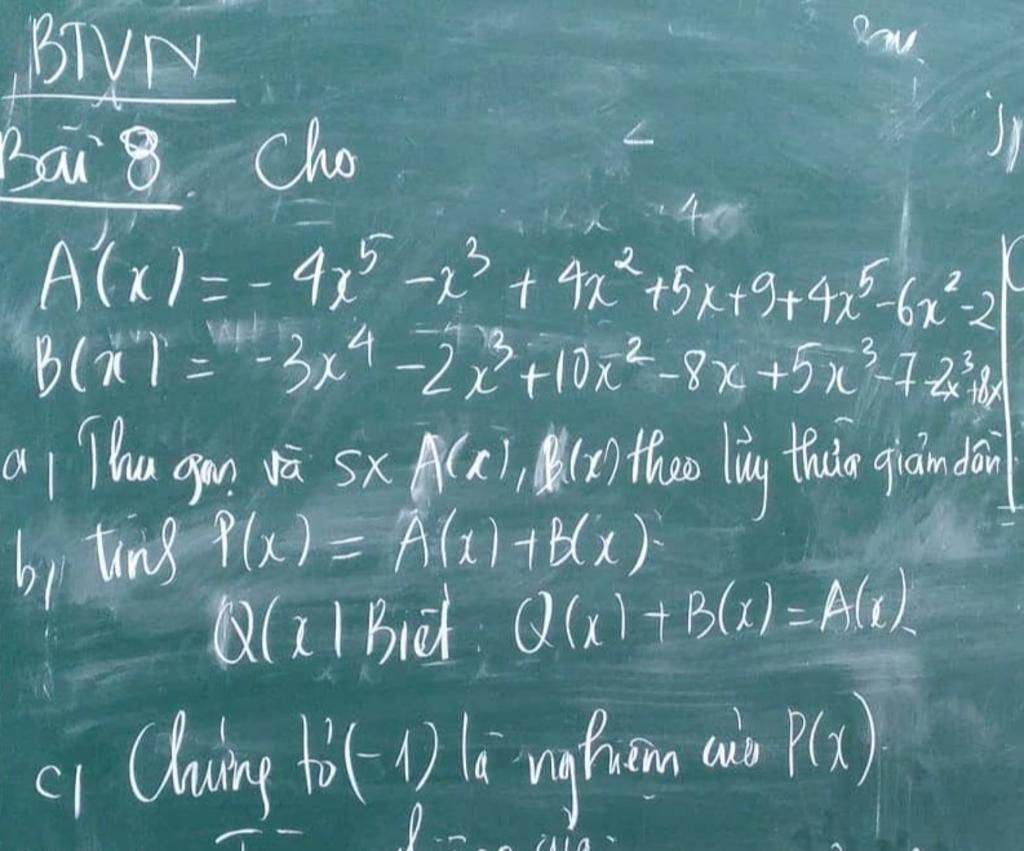 BTVN
Bài 8. Cho
A(x) = - 4x⁵ - x³ + 4x² + 5x + 9 + 4x⁵ - 6x² - 2
B(x) = -3x⁴ - 2x³ + 10x² - 8x + 5x³ - 7 - 2x³ + 8x
a, Thu gọn và sx A(x), B(x) theo lũy thừa giảm dần
b, tính P(x) = A(x) + B(x).
Q(x) Biết: Q(x) + B(x) = A(x)
c, Chứng tỏ (-1) là nghiệm của P(x).